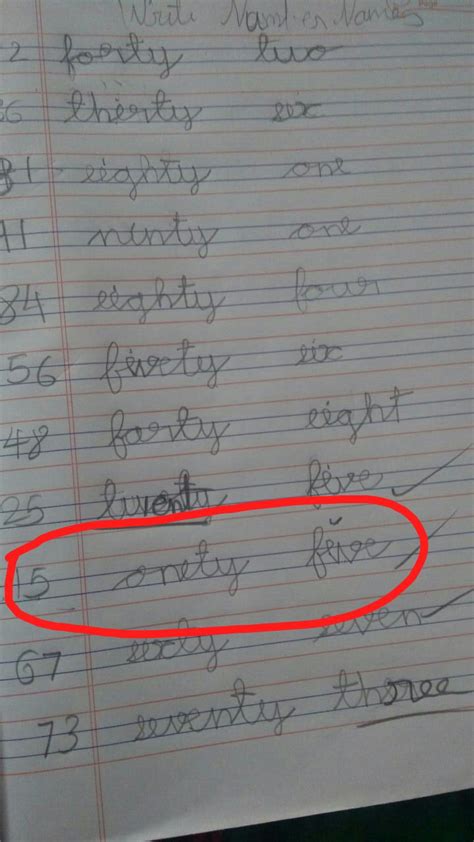 Write Number Names
2 foorty two
36 thirty six
81 eighty one
91 ninty one
84 eighty four
56 fivety six
48 forty eight
25 twenty five
15 onety five
67 sixty seven
73 seventy three